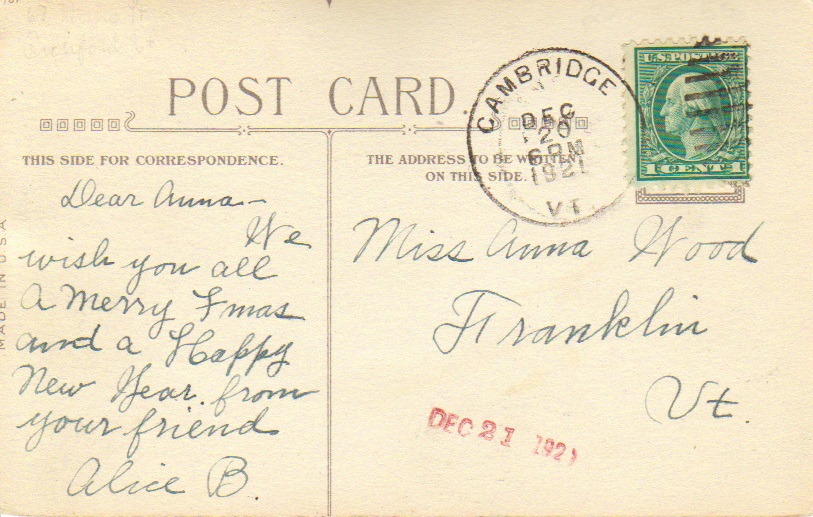 POST CARD
THIS SIDE FOR CORRESPONDENCE.
THE ADDRESS TO BE WRITTEN
ON THIS SIDE.
CAMBRIDGE
DEC
20
6 PM
1921
VT.
U.S. POSTAGE
1 CENT 1
MADE IN U.S.A
Dear Anna—
We
wish you all
A Merry Xmas
and a Happy
New Year. from
your friend
Alice B
Miss Anna Wood
Franklin
Vt.
DEC 21 192